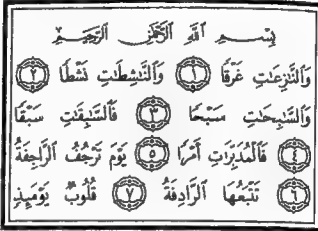 بِسْمِ ٱللَّهِ ٱلرَّحْمَٰنِ ٱلرَّحِيمِ
وَٱلنَّٰزِعَٰتِ غَرْقًا ١ وَٱلنَّٰشِطَٰتِ نَشْطًا ٢
وَٱلسَّٰبِحَٰتِ سَبْحًا ٣ فَٱلسَّٰبِقَٰتِ سَبْقًا
٤ فَٱلْمُدَبِّرَٰتِ أَمْرًا ٥ يَوْمَ تَرْجُفُ ٱلرَّاجِفَةُ
٦ تَتْبَعُهَا ٱلرَّادِفَةُ ٧ قُلُوبٌ يَوْمَئِذٍ